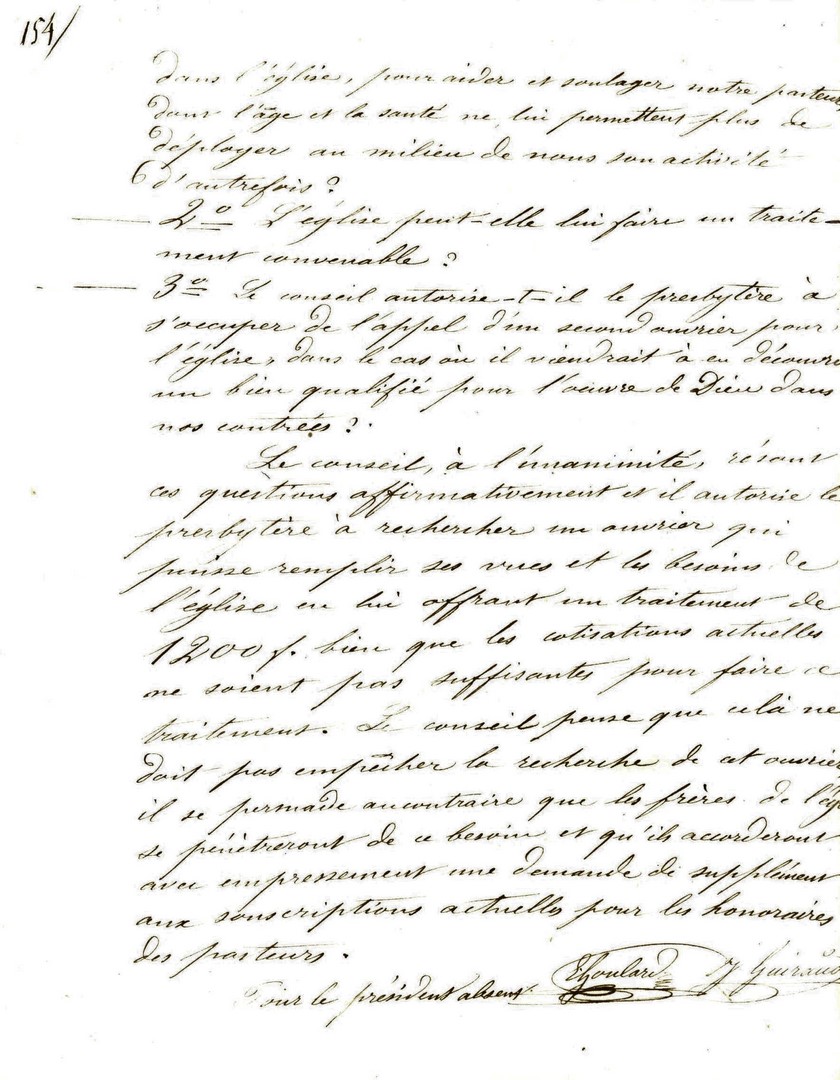 154/
dans l'église, pour aider et soulager notre pasteur
dont l'âge et la santé ne lui permettent plus de
déployer au milieu de nous son activité
d'autrefois ?
2º L'église peut-elle lui faire un traite-
ment convenable ?
3º Le conseil autorise-t-il le presbytère à
s'occuper de l'appel d'un second ouvrier pour
l'église, dans le cas où il viendrait à en découvrir
un bien qualifié pour l'oeuvre de Dieu dans
nos contrées ?
Le conseil, à l'unanimité, résout
ces questions affirmativement et il autorise le
presbytère à rechercher un ouvrier qui
puisse remplir ses vues et les besoins de
l'église en lui offrant un traitement de
1200 f. bien que les cotisations actuelles
ne soient pas suffisantes pour faire ce
traitement. Le conseil pense que celà ne
doit pas empêcher la recherche de cet ouvrier
il se persuade au contraire que les frères de l'ég
se pénètreront de ce besoin et qu'ils accorderont
avec empressement une demande de supplément
aux souscriptions actuelles pour les honoraires
des pasteurs.
Pour le président absent Goulard J Guiraud